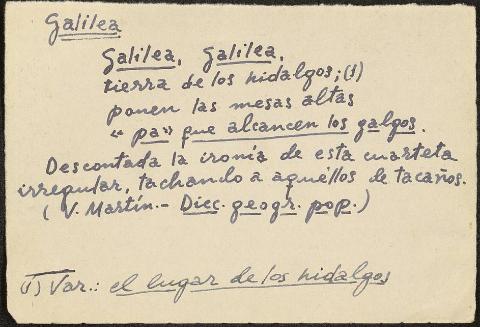 Galilea
Galilea, Galilea,
tierra de los hidalgos; (1)
ponen las mesas altas
"pa" que alcancen los galgos.
Descontada la ironía de esta cuarteta
irregular, tachando a aquéllos de tacaños.
(V. Martín.- Dicc. geogr. pop.)
(1) Var.: el lugar de los hidalgos